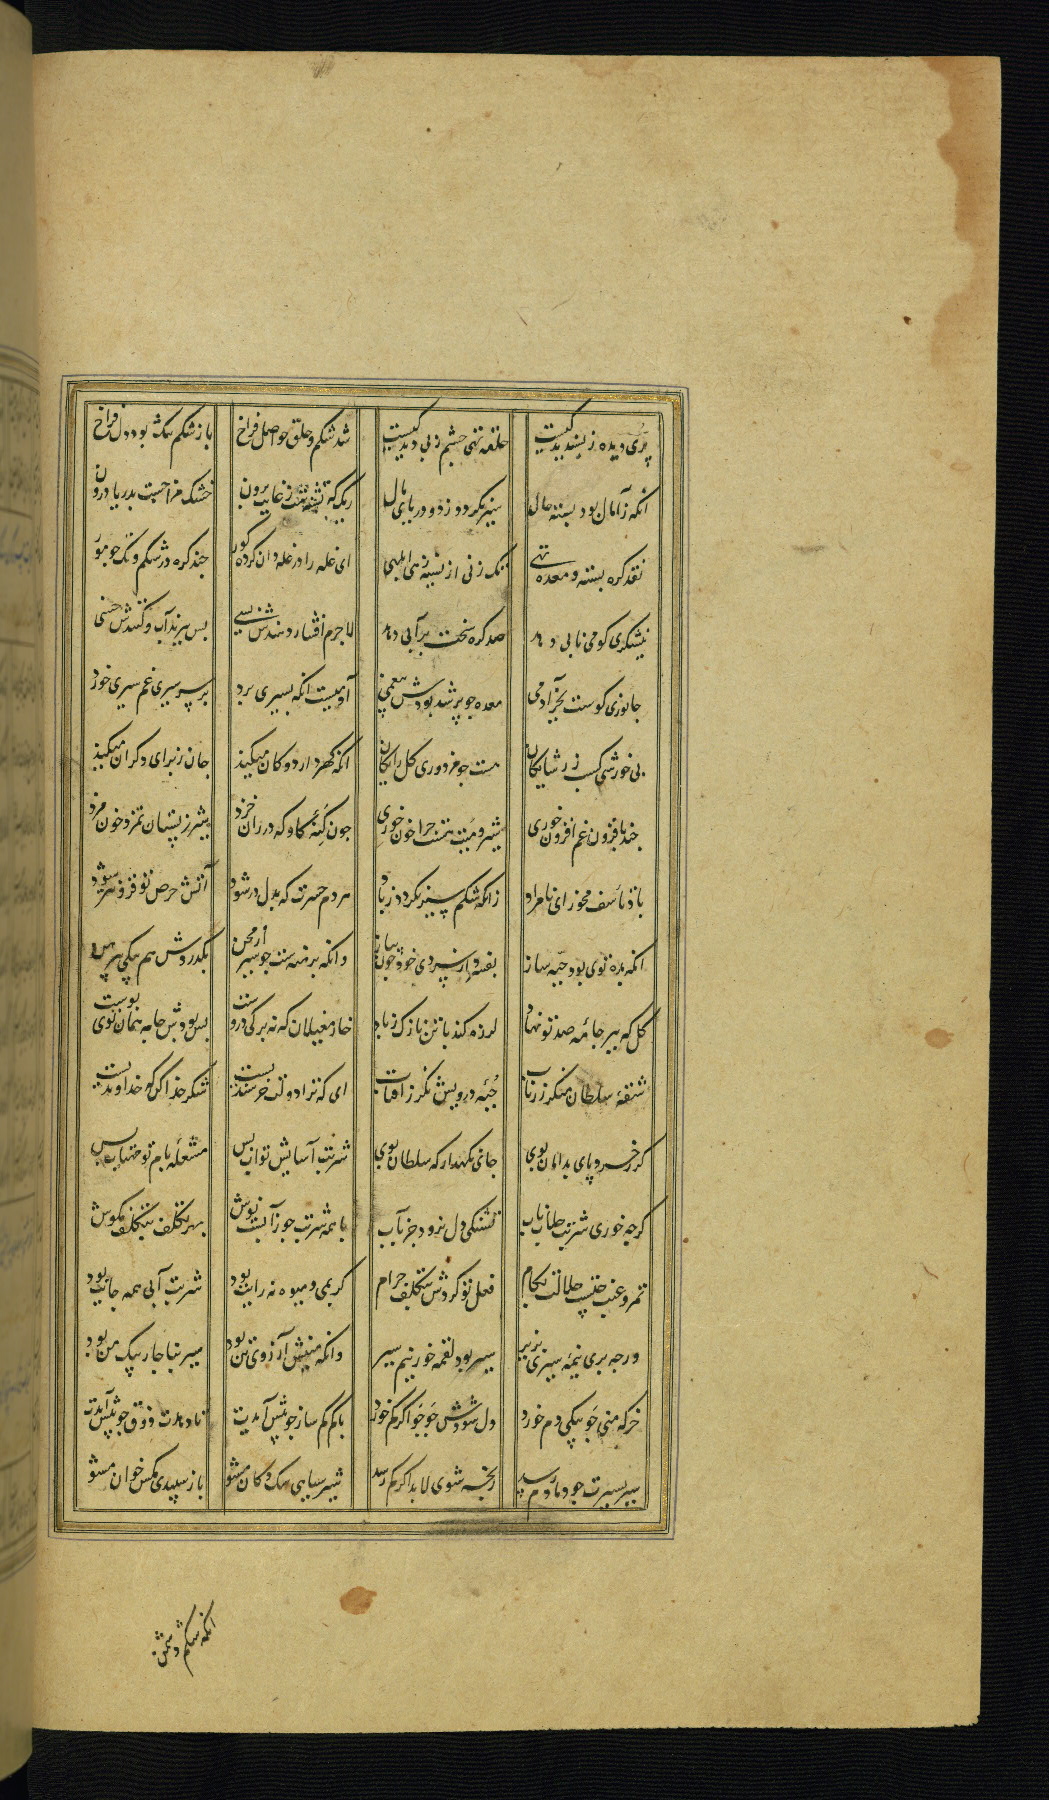 پری دیده ز بیند بدکیست حلقه تهی چشم ز بی دیدکیست شد شکم و حلق حواصل فراخ باز شکم تنگ بود دل فراخ
آنکه ز آمال بود بسته حال سیر نکردد ز دو دریای مال ریک که تشنه‌ست ز غایت برون خشک مزاجست بدریا درون
نقد کره بسته و معده تهی تنک زنی از نسیه زهی ابلهی ای غله را در غله دان کرده کور چند کره در شکم و تک چو مور
نیشکری کو می نابی دهد صد کره سخت بر آبی دهد لاجرم افشارد بندش بسی بس ببرند آب و کنندش خسی
جانوری کوست بجز آدمی معده چو پر شد بودش بیغمی آدمیست آنکه بسیری برد بر سر سیری غم سیری خورد
بی خورشی کسب زر شایکان هست چو مزدوری کل رایکان آنکه کهر دارد و کان میکند جان ز برای دکران میکند
چند بافزون غم افزون خوری شیر و مییت هست چرا خون خوری چون کنه کاو که در ران خزد شیر ز پستان نمزد خون مزد
باد تاسف مخور ای نامراد زانکه شکم سیر نکردد ز باد هر دم حسرت که بدل در شود آتش حرص تو فزونتر شود
آنکه بده توی بود جبه ساز بفسرد از سردی خود چون پیاز وانکه برهنه‌ست چو سیر از محن بکذردش هم بیکی پیرهن
کل که بپیر جامه صد تو نهاد لرزه کند با تن نازک ز باد خار مغیلان که نه برکی دروست بس بودش جامه همان توی پوست
شقه سلطان منکر زر ناب جبه درویش نکر ز افتاب ای که ترا دولت خرسندیست شکر خدا کن که خداوندیست
کر ز خسرو پای بدامان بوی جانی نکهدار که سلطان بوی شربت آسایش تو آب بس مشعله بام تو مهتاب بس
کرچه خوری شربت جلاب ناب تشنکی دل نرود جز بآب با همه شربت چو ز آبست نوش بهر تکلف بتکلف مکوش
تمر و عنب چیست حلالت بکام فعل تو کردش بتکلف حرام کر بمی و میوه نه رایت بود شربت آبی همه جایت بود
ورچه بری نیمه سیری بزیر سیر بود لقمه خور نیم سیر وانکه منیش آرزوی تن بود سیر نه با چار یک من بود
خر که منی جو بیکی دم خورد دل شودش جو جو اکر کم خورد با کم کم ساز چو پیش آمدت تا دهدت ذوق چو پیش آیدت
سیر بسیرت چو دمادم رسد رنجه شوی لابد اکر کم رسد شیر سیاهی سک دکان مشو باز سپیدی مکس خوان مشو
آنکه شکم دشمن